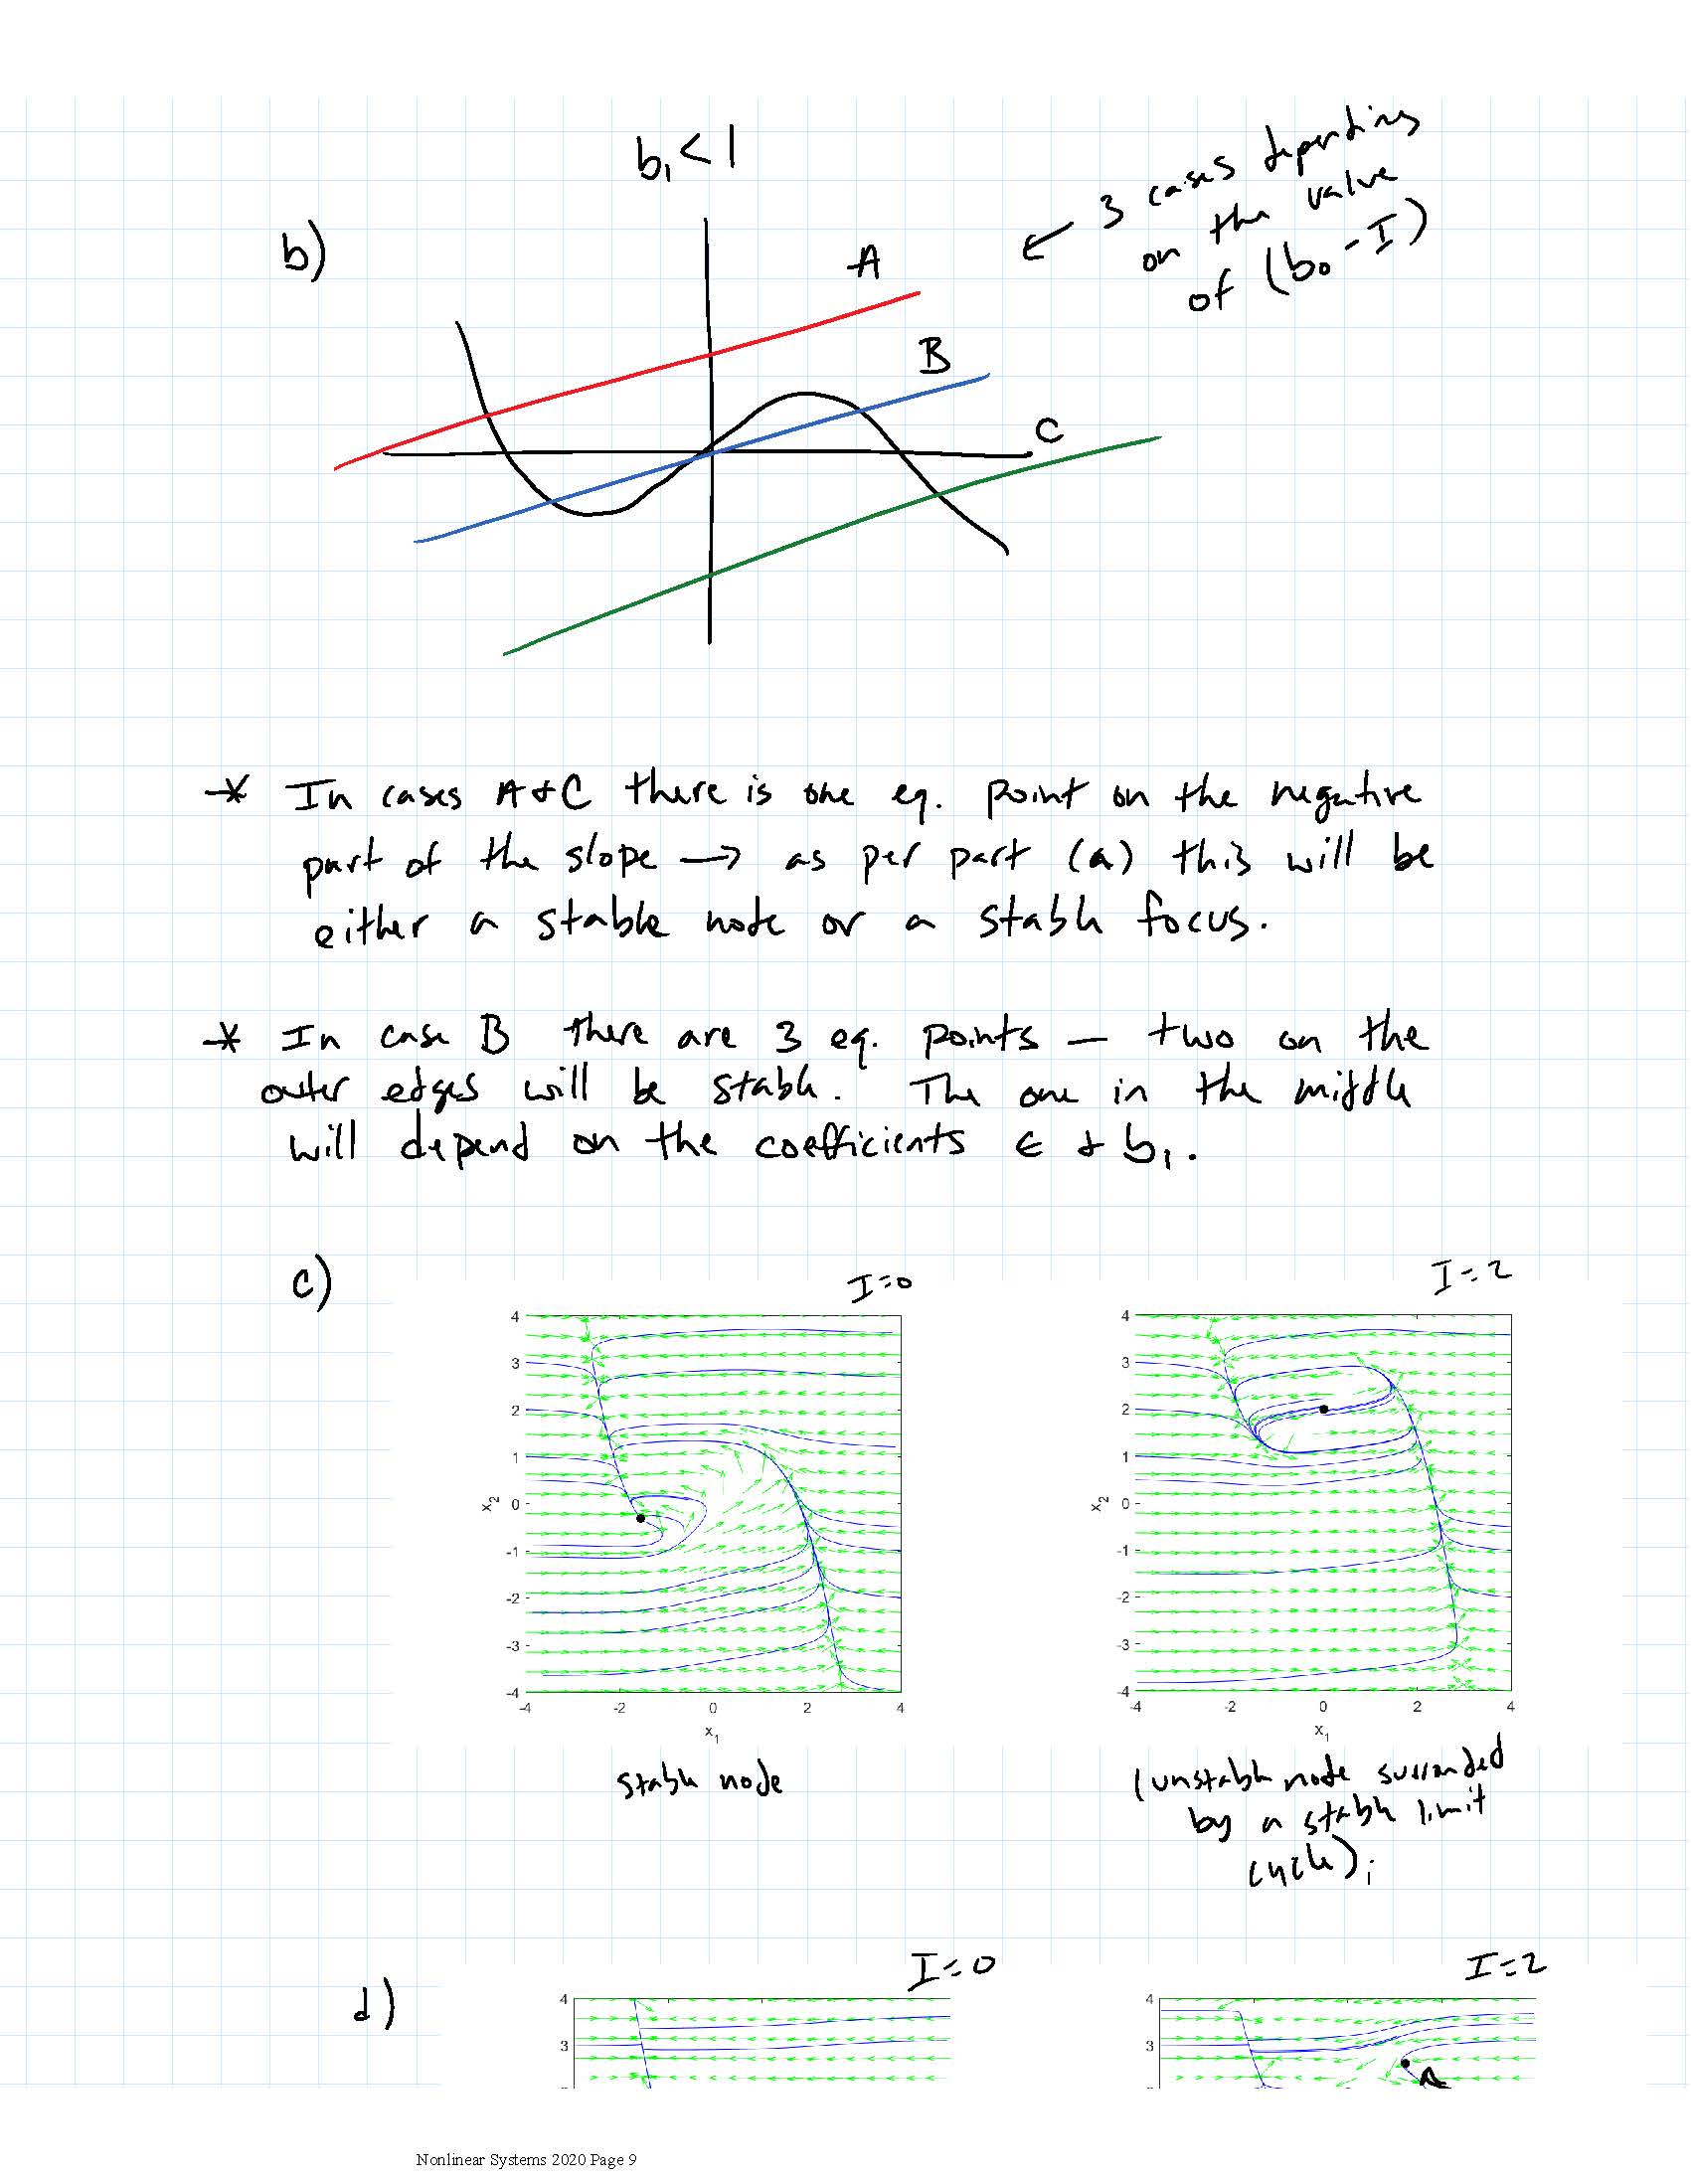 b₁ < 1
← 3 cases depending
on the value
of (b₀ - I)
b)
A
B
C
* In cases A & C there is one eq. point on the negative
part of the slope → as per part (a) this will be
either a stable note or a stable focus.
* In case B there are 3 eq. points — two on the
outer edges will be stable. The one in the middle
will depend on the coefficients ϵ & b₁.
c)
I=0
I=2
4
3
2
1
0
-1
-2
-3
-4
x₂
-4 -2 0 2 4
x₁
4
3
2
1
0
-1
-2
-3
-4
x₂
-4 -2 0 2 4
x₁
stable node
(unstable node surrounded
by a stable limit
cycle);
d)
I=0
I=2
4
3
4
3
Nonlinear Systems 2020 Page 9